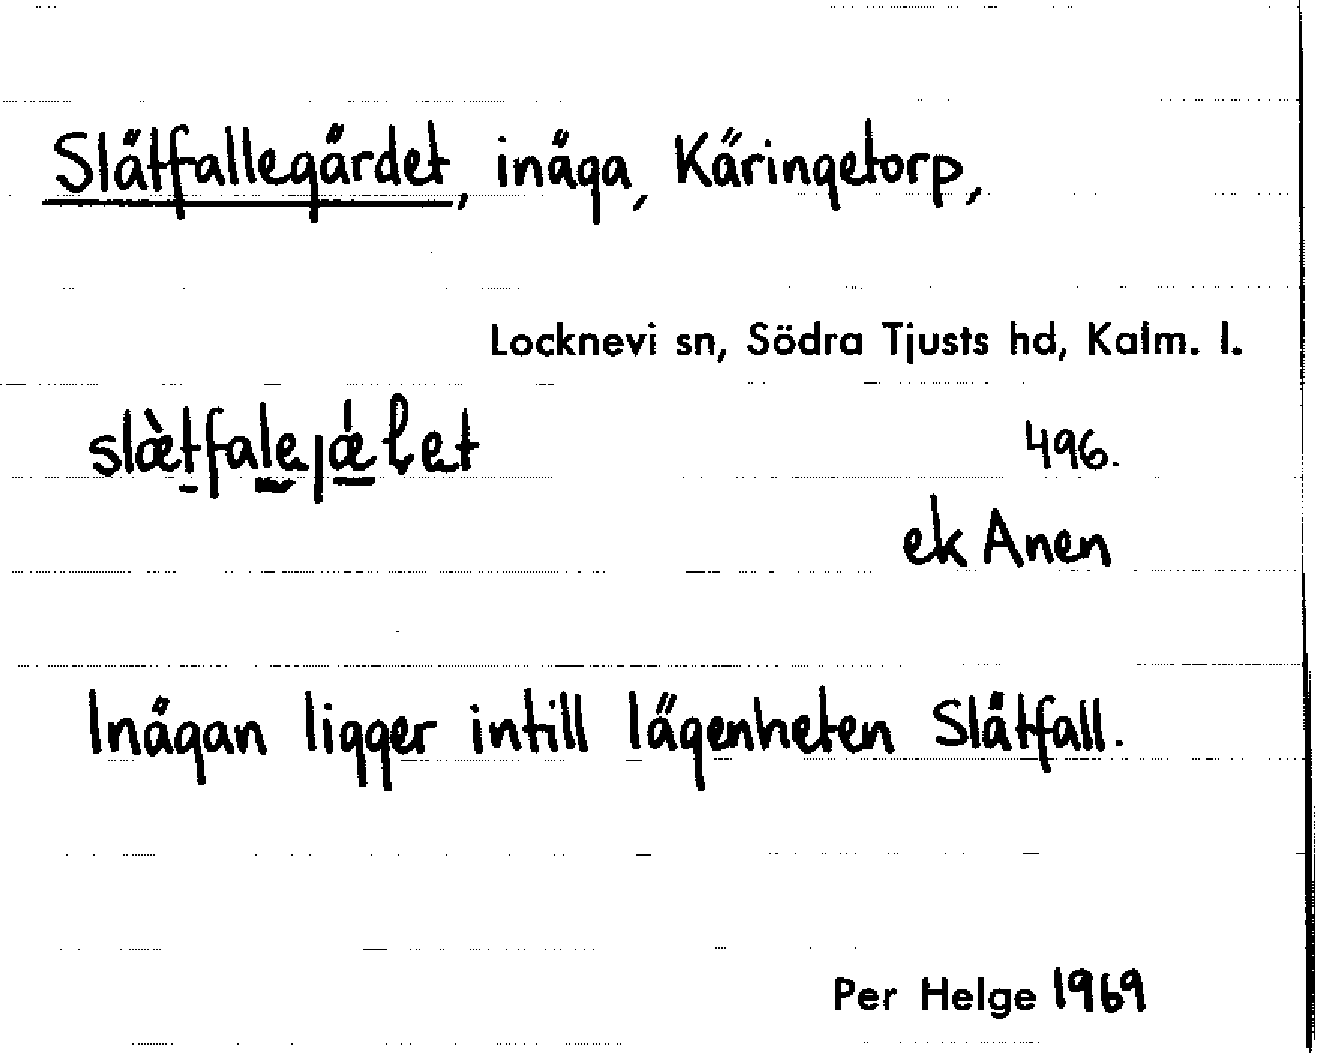 Slätfallegärdet, inäga, Käringetorp,
Locknevi sn, Södra Tjusts hd, Kalm. l.
slæ̀tfalejǽɭet
496.
ek Anen
Inägan ligger intill lägenheten Slätfall.
Per Helge 1969